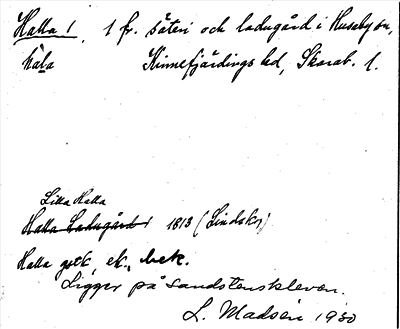 Halla 1 1 fr. säteri och ladugård i Husaby sn,
håla Kinnefjärdings hd, Skarab. l.
Lilla Halla
Halla Ladugård 1813 (Lindskog)
Halla gstk, ek., bek.
Ligger på sandstenskleven.
L. Madsén 1930